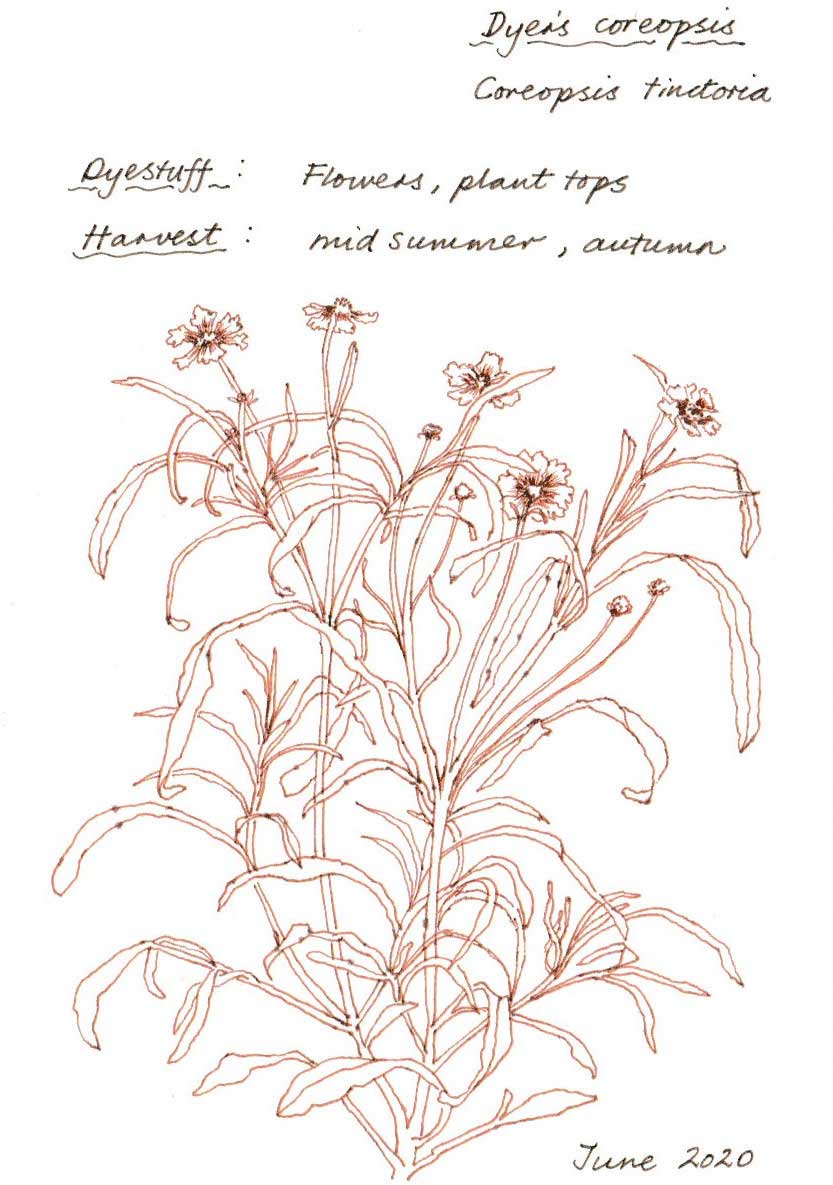 Dyer's coreopsis
Coreopsis tinctoria
Dyestuff : Flowers, plant tops
Harvest : mid summer, autumn
June 2020